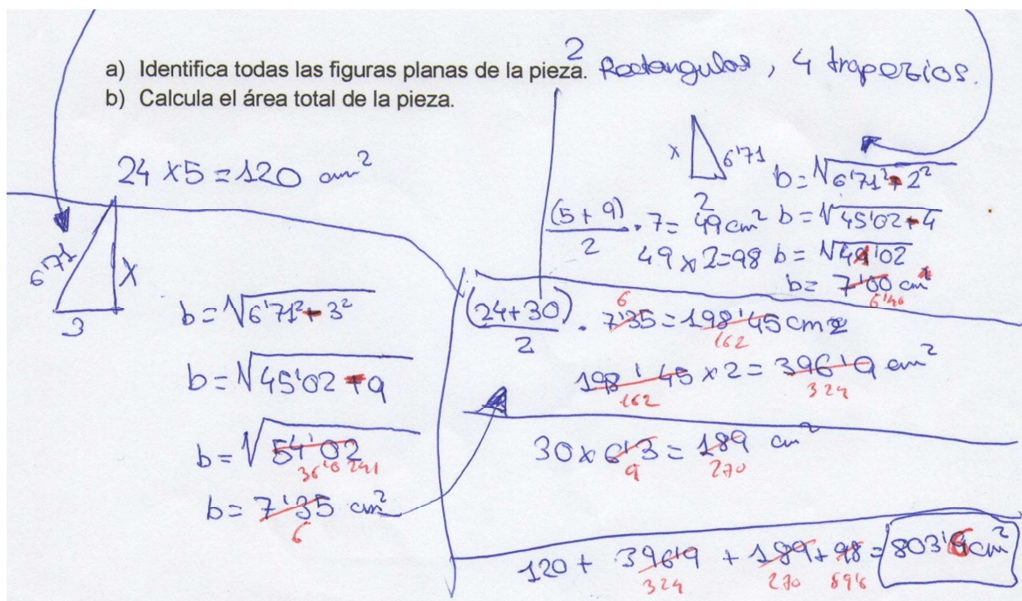 a) Identifica todas las figuras planas de la pieza. 2 Rectangulos, 4 trapezios.
b) Calcula el área total de la pieza.
24 x 5 = 120 cm²
6'71
x
3
b = √6'71² - 3²
b = √45'02 - 9
b = √54'02
b = 7'35 cm²
6
x 6'71
2
b = √6'71² - 2²
(5 + 9)/2 · 7 = 49 cm²
b = √45'02 - 4
49 x 2 = 98
b = √49'02
b = 7'00 cm
6'40
(24+30)/2 · 7'35 = 198'45 cm2
6
162
198'45 x 2 = 396'9 cm²
162
324
30 x 6'3 = 189 cm²
9
270
120 + 396'9 + 189 + 98 = 803'6 cm²
324
270
89'6